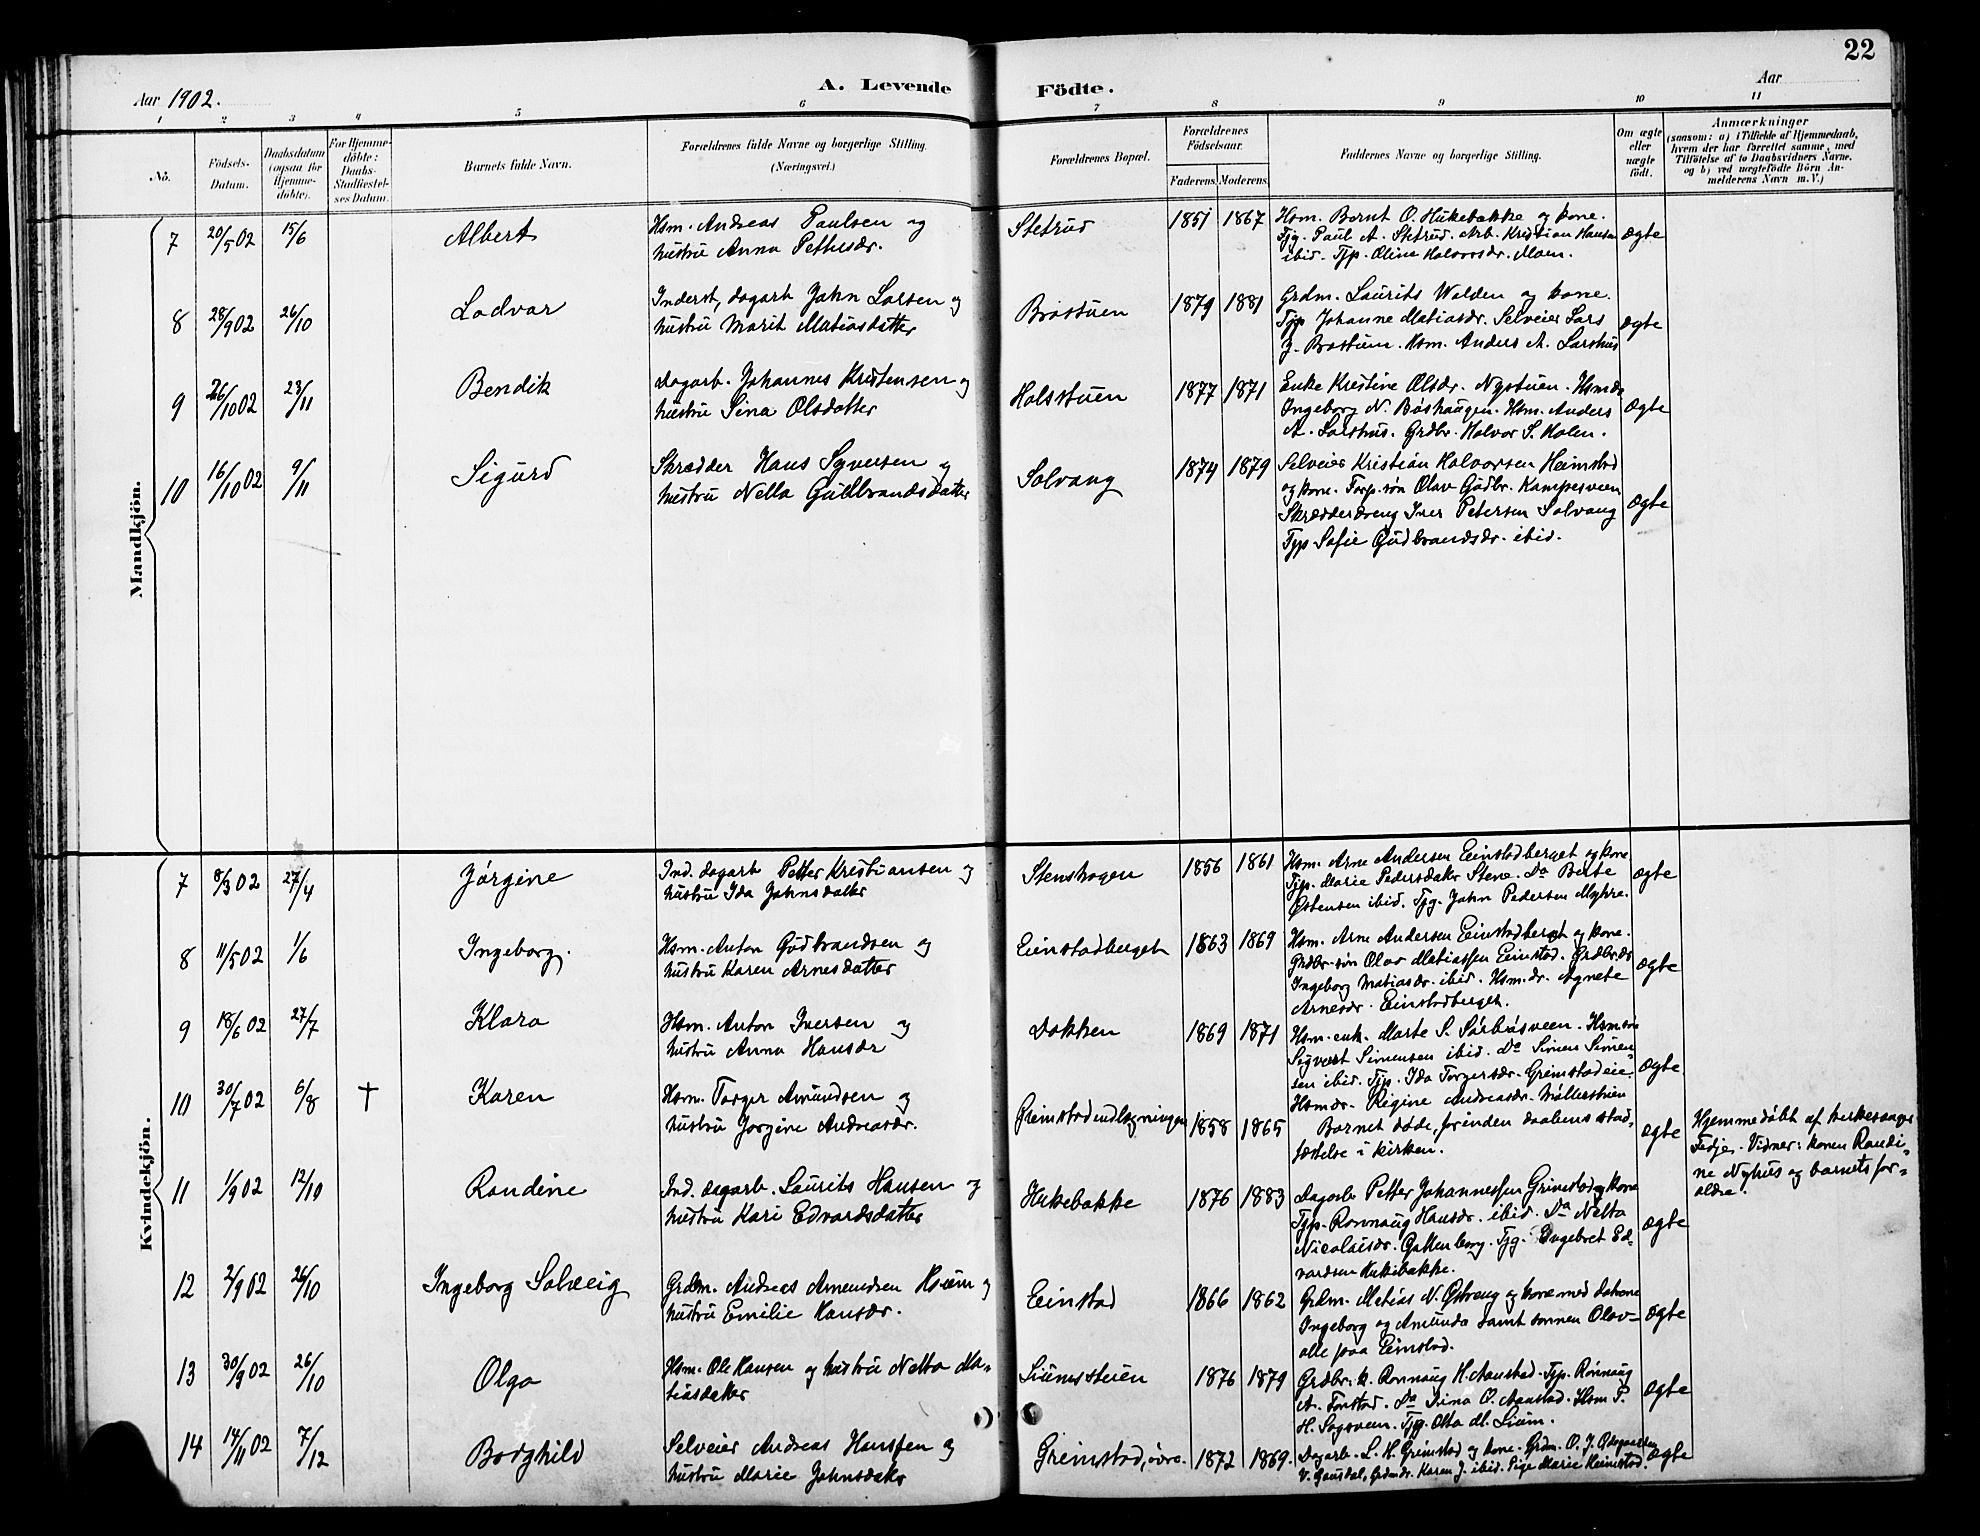 22
Aar 1902.
A. Levende Födte.
Aar
1 2 3 4 5 6 7 8 9 10 11
No.
Födsels-Datum.
Daabsdatum (ogsaa for Hjemmedöbte).
For Hjemmedöbte: Daabs-Stadfæstelses Datum.
Barnets fulde Navn.
Forældrenes fulde Navne og borgerlige Stilling. (Næringsvei.)
Forældrenes Bopæl.
Forældrenes Födselsaar.
Faderens. Moderens.
Faddernes Navne og borgerlige Stilling.
Om ægte eller uægte födt.
Anmærkninger
(saasom: a) i Tilfælde af Hjemmedaab,
hvem der har forrettet samme, med
Tilföielse af to Daabsvidners Navne.
og b) ved uægtefödte Börn An-
melderens Navn m. V.)
Mandkjön.
7 20/5 02 15/6 Albert
Hsm. Andreas Paulsen og
hustru Anna Pettersdr.
Stetrud 1851 1867
Hsm. Bernt O. Hukebakke og kone.
Tjg. Paul A. Stetrud. Arb. Kristian Hansen
ibid. Tjp. Oline Halvorsdr. Moen.
ægte
8 28/9 02 26/10 Lodvar
Inderst, dagarb John Larsen og
hustru Marit Matiasdatter
Brostuen 1879 1881
Grdm. Laurits Wolden og kone.
Tjp Johanne Matiasdr. Selveier Lars
J. Brostuen. Hsm. Anders A. Larshus
ægte
9 26/10 02 23/11 Bendik
Dagarb. Johannes Kristensen og
hustru Sina Olsdatter
Holsstuen 1877 1871
Enke Kristine Olsdr. Nystuen. Hsmdr
Ingeborg N. Böshaugen. Hsm. Anders
A. Larshus. Grdbr. Halvor S. Holen.
ægte
10 16/10 02 9/11 Sigurd
Skrædder Hans Syversen og
hustru Netta Gulbrandsdatter
Solvang 1874 1879
Selveier Kristian Halvorsen Heimstad
og kone. Torp. sön Olav Gudbr. Kampesveen
Skrædderdreng Iver Petersen Solvang
Tjp Sofie Gudbrandsdr. ibid.
ægte
Kvindekjön.
7 8/3 02 27/4 Jörgine
Ind. dagarb Petter Kristiansen og
hustru Ida Johnsdatter
Stenshagen 1856 1861
Hsm. Arne Andersen Einstadberget og kone
Tjp. Marie Pedersdatter Stene. Do Berte
Østensen ibid. Tjg. John Pedersen Myhre.
ægte
8 11/5 02 1/6 Ingeborg.
Hsm. Anton Gudbrandsen og
hustru Karen Arnesdatter
Einstadberget 1863 1869
Hsm. Arne Andersen Einstadberget og kone.
Grdbr. sön Olav Matiassen Einstad. Grdbr.dr
Ingeborg Matiasdr. ibid. Hsm.dr. Agnete
Arnesdr. Einstadberget.
ægte
9 18/6 02 27/7 Klara
Hsm. Anton Iversen og
hustru Anna Hansdr
Dokken 1869 1871
Hsm. enk. Marte S. Sörbösveen. Hsm sön
Syvert Simensen ibid. Do Simen Simen-
sen ibid. Tjp. Ida Torgersdr. Greimstadeie.
Hsmdr. Regine Andreasdr. Möllerstuen
ægte
10 30/7 02 6/8 † Karen
Hsm. Torger Amundsen og
hustru Jorgine Andreasdr.
Greimstadudlegningen 1858 1865
Barnet döde, forinden daabens stad-
fæstelse i kirken.
ægte
Hjemmedöbt af kirkesanger
Fedje. Vidner: konen Randi-
ne Nyhus og barnets for-
ældre.
11 1/9 02 12/10 Randine
Ind. dagarb. Laurits Hansen og
hustru Kari Edvardsdatter
Hukebakke 1876 1883
Dagarb Petter Johannessen Grimstad og kone
Tjp. Ronnaug Hansdr. ibid. Do Netta
Nicolaisdr. Gottenborg. Tjg. Engebret Ed-
vardsen Hukebakke.
ægte
12 2/9 02 26/10 Ingeborg Solveig
Grdm. Andreas Amundsen Hsium og
hustru Emilie Hansdr.
Einstad 1866 1862
Grdm. Matias N. Østreng og kone med döttrene
Ingeborg og Amunda samt sönnen Olav-
alle paa Einstad.
ægte
13 30/9 02 26/10 Olga
Hsm. Ole Hansen og hustru Netta Ma-
tiasdatter
Liumsstuen 1876 1879
Grdbr. k. Ronnaug H. Aanstad. Tjp. Rönnaug
A. Forstad. Do Dina O. Aanstad. Hsm P.
H. Sagsveen. Tjg. Otto M. Lium.
ægte
14 14/11 02 7/12 Borghild
Selveier Andreas Hansen og
hustru Marie Johnsdatter
Greimstad, övre. 1872 1869.
Dagarb. L. H. Greimstad og kone. Grdm. O. J. Ødegaarden
V. Gausdal, Grdmdr. Karen J. ibid. Pige Marie Heimstad.
ægte